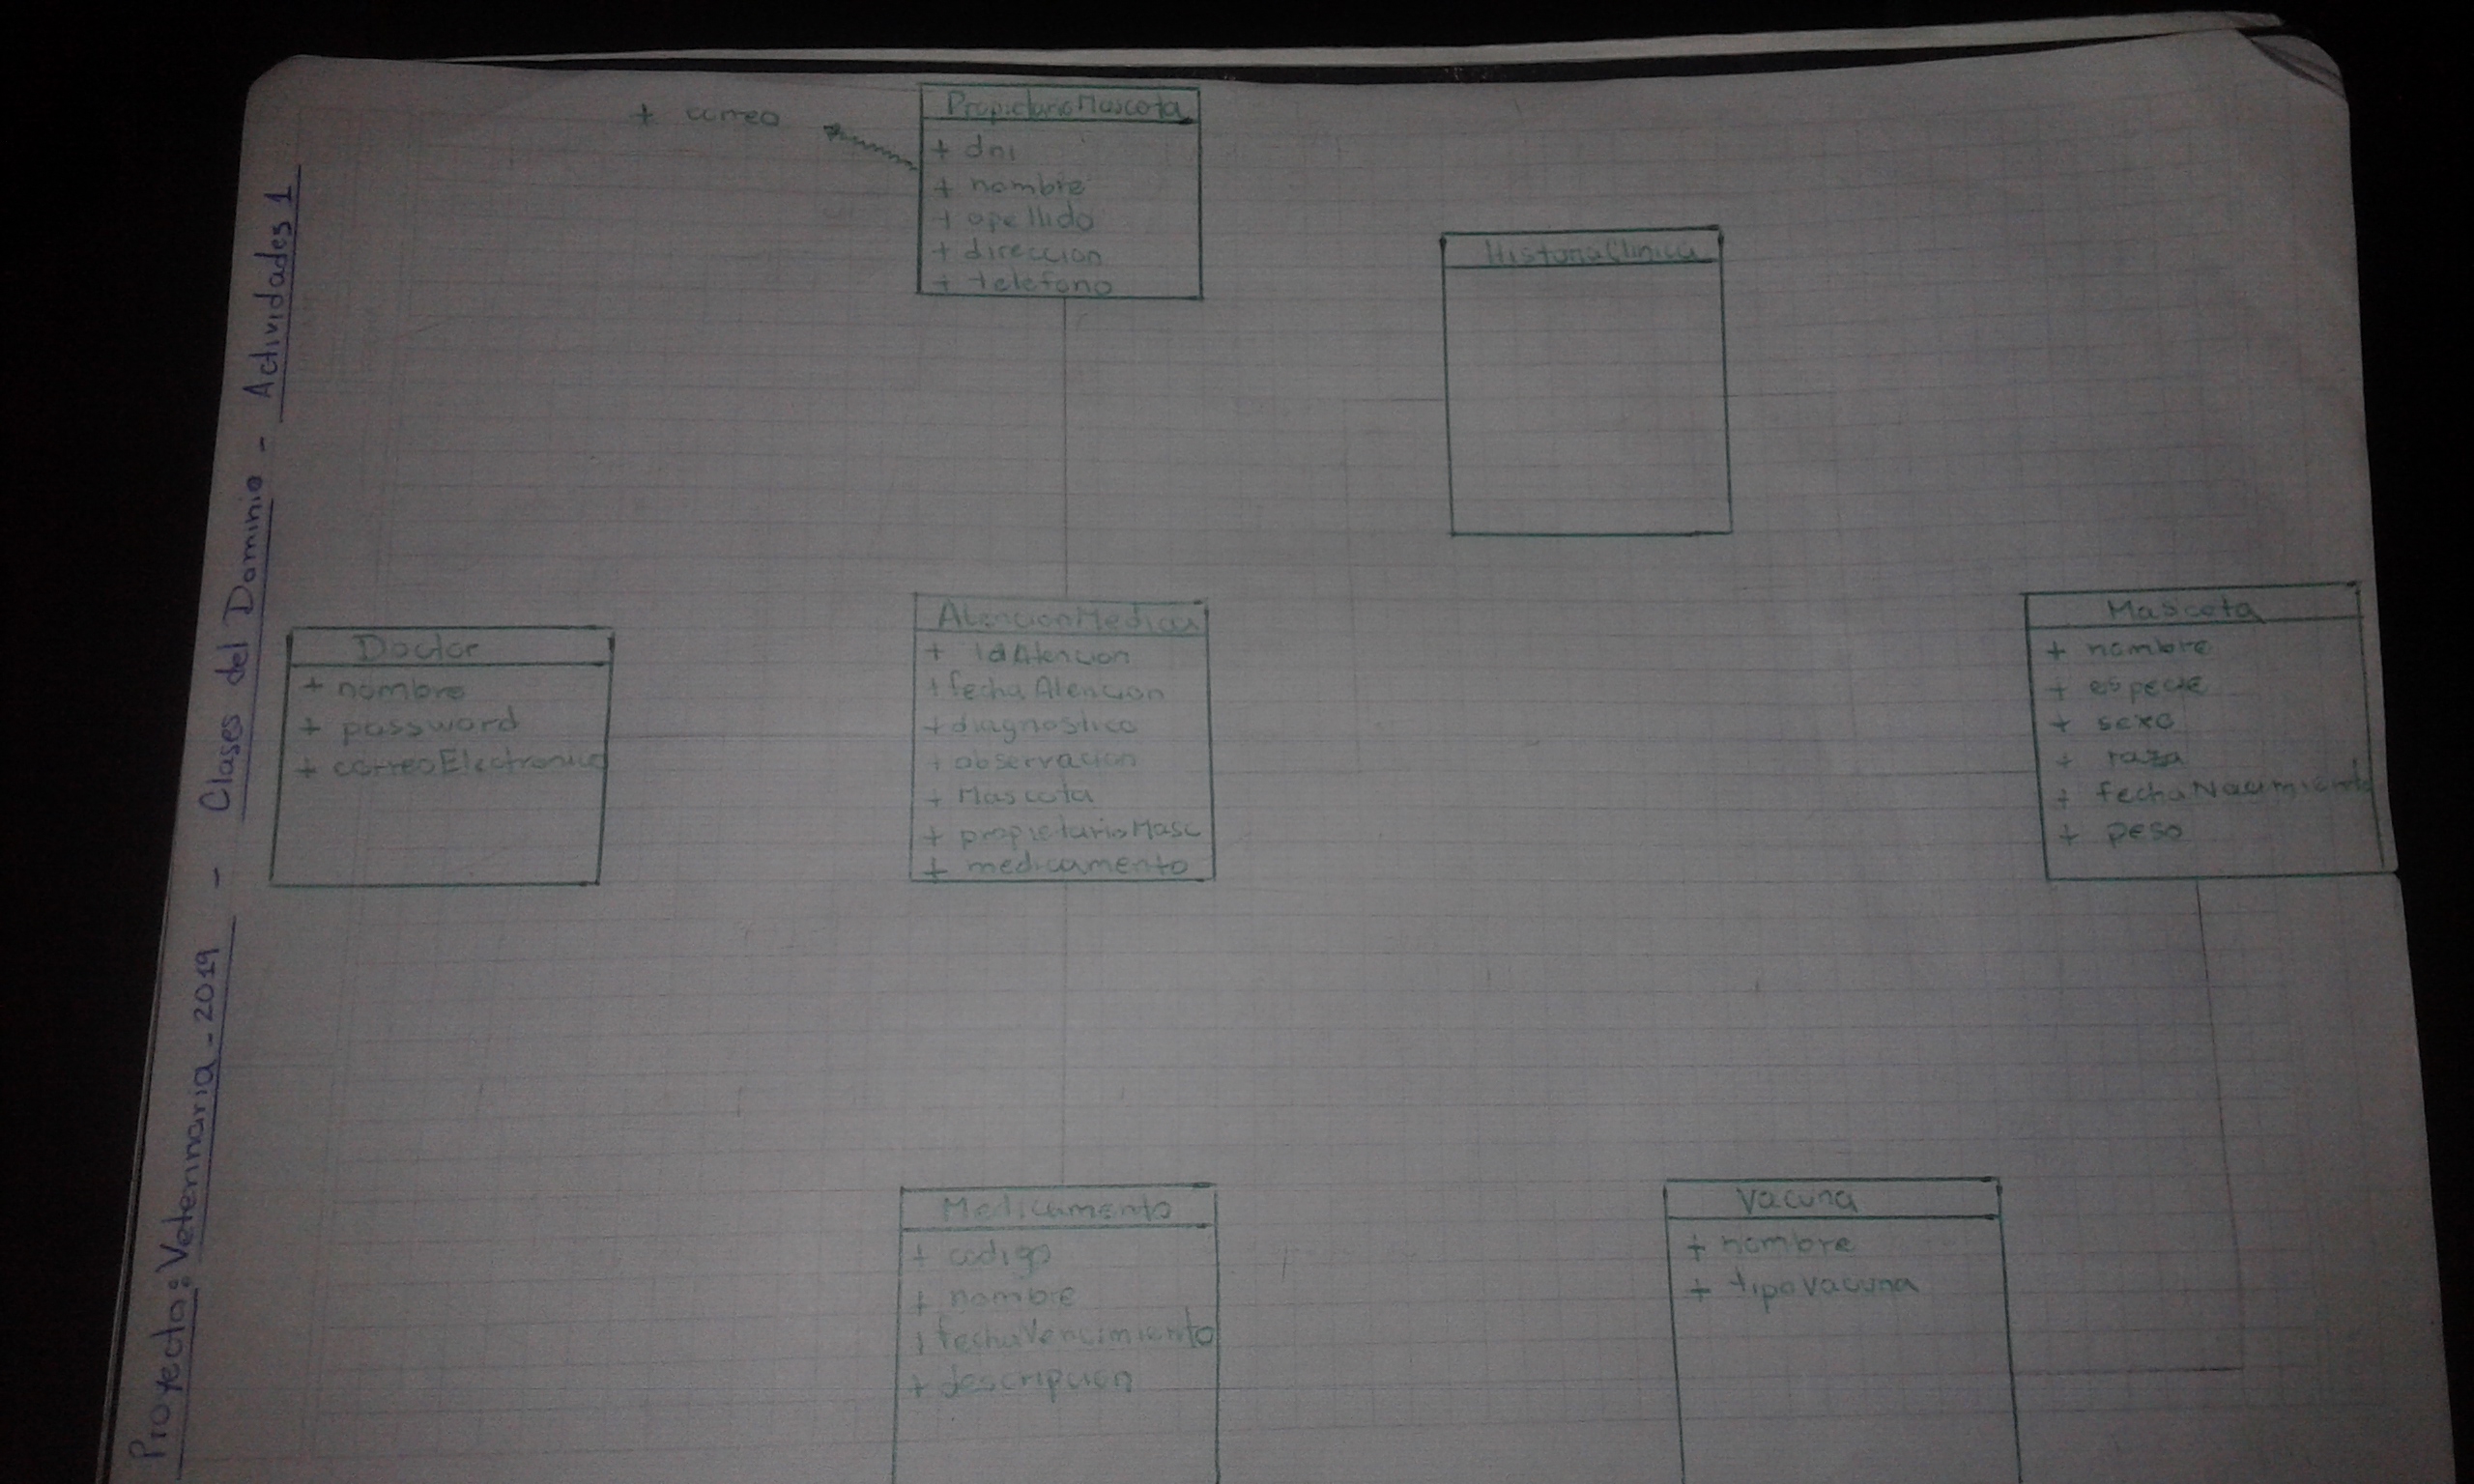 Proyecto: Veterinaria - 2019 - Clases del Dominio - Actividades 1
+ correo
PropietarioMascota
+ dni
+ nombre
+ apellido
+ direccion
+ telefono
HistoriaClinica
Doctor
+ nombre
+ password
+ correoElectronico
AtencionMedica
+ IdAtencion
+ fechaAtencion
+ diagnostico
+ observacion
+ Mascota
+ propietarioMasc
+ medicamento
Mascota
+ nombre
+ especie
+ sexo
+ raza
+ fechaNacimiento
+ peso
Medicamento
+ codigo
+ nombre
+ fechaVencimiento
+ descripcion
Vacuna
+ nombre
+ tipoVacuna